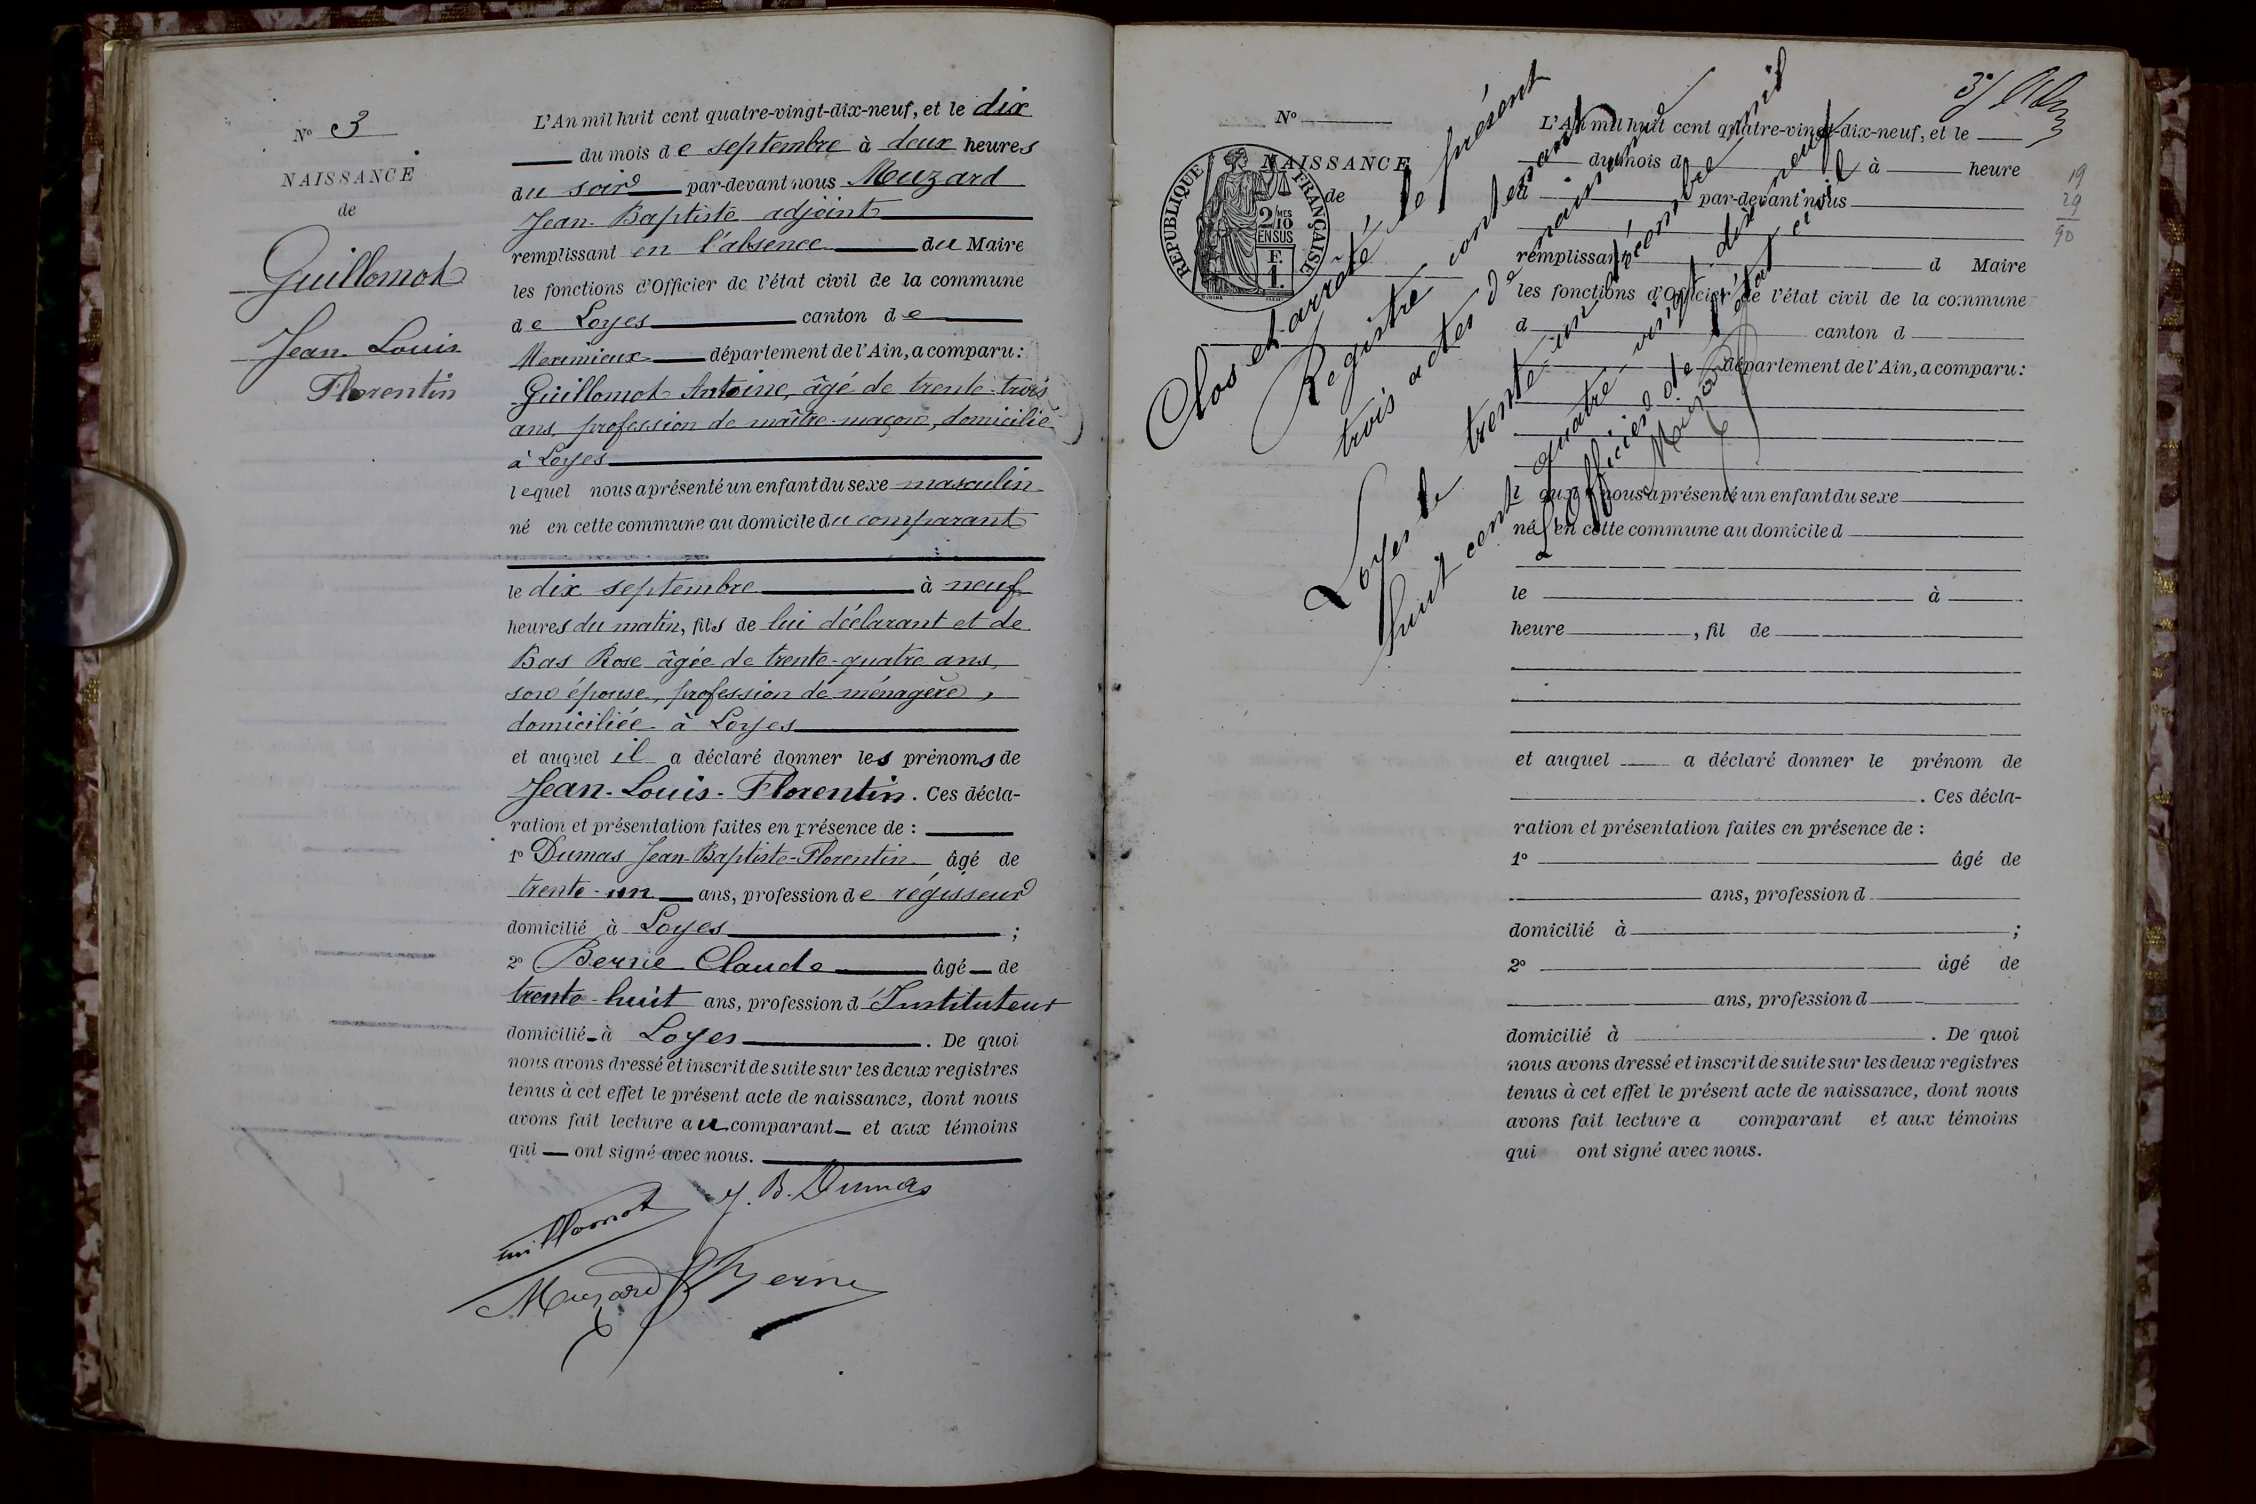 N° 3
NAISSANCE
de
Guillomot
Jean Louis
Florentin
L'An mil huit cent quatre-vingt-dix-neuf, et le dix
du mois de septembre à deux heures
du soir par-devant nous Muzard
Jean-Baptiste adjoint
remplissant en l'absence du Maire
les fonctions d'Officier de l'état civil de la commune
de Loyes canton de
Meximieux département de l'Ain, a comparu:
Guillomot Antoine, âgé de trente-trois
ans, profession de maître-maçon, domicilié
à Loyes
lequel nous a présenté un enfant du sexe masculin
né en cette commune au domicile du comparant
le dix septembre à neuf
heures du matin, fils de lui déclarant et de
Bas Rose âgée de trente-quatre ans,
son épouse, profession de ménagère,
domiciliée à Loyes
et auquel il a déclaré donner les prénoms de
Jean-Louis-Florentin. Ces décla-
ration et présentation faites en présence de :
1° Dumas Jean-Baptiste-Florentin âgé de
trente-un ans, profession de régisseur
domicilié à Loyes ;
2° Berne Claude âgé de
trente-huit ans, profession d'Instituteur
domicilié à Loyes. De quoi
nous avons dressé et inscrit de suite sur les deux registres
tenus à cet effet le présent acte de naissance, dont nous
avons fait lecture au comparant et aux témoins
qui ont signé avec nous.
J. B. Dumas
Guillomot
Muzard Berne
3°/
19
29
90
N°
NAISSANCE
de
REPUBLIQUE FRANÇAISE
2/10 MES
EN SUS
F.
1.
Clos et arrêté le présent
Registre contenant
trois actes de naissance
Loyes le trente-un décembre mil
huit cent quatre-vingt-dix-neuf
L'Officier de l'état civil
Muzard
L'An mil huit cent quatre-vingt-dix-neuf, et le
du mois d à heure
d par-devant nous
remplissant d Maire
les fonctions d'Officier de l'état civil de la commune
d canton d
département de l'Ain, a comparu:
l quel nous a présenté un enfant du sexe
né en cette commune au domicile d
le à
heure , fil de
et auquel a déclaré donner le prénom de
. Ces décla-
ration et présentation faites en présence de :
1° âgé de
ans, profession d
domicilié à ;
2° âgé de
ans, profession d
domicilié à . De quoi
nous avons dressé et inscrit de suite sur les deux registres
tenus à cet effet le présent acte de naissance, dont nous
avons fait lecture a comparant et aux témoins
qui ont signé avec nous.